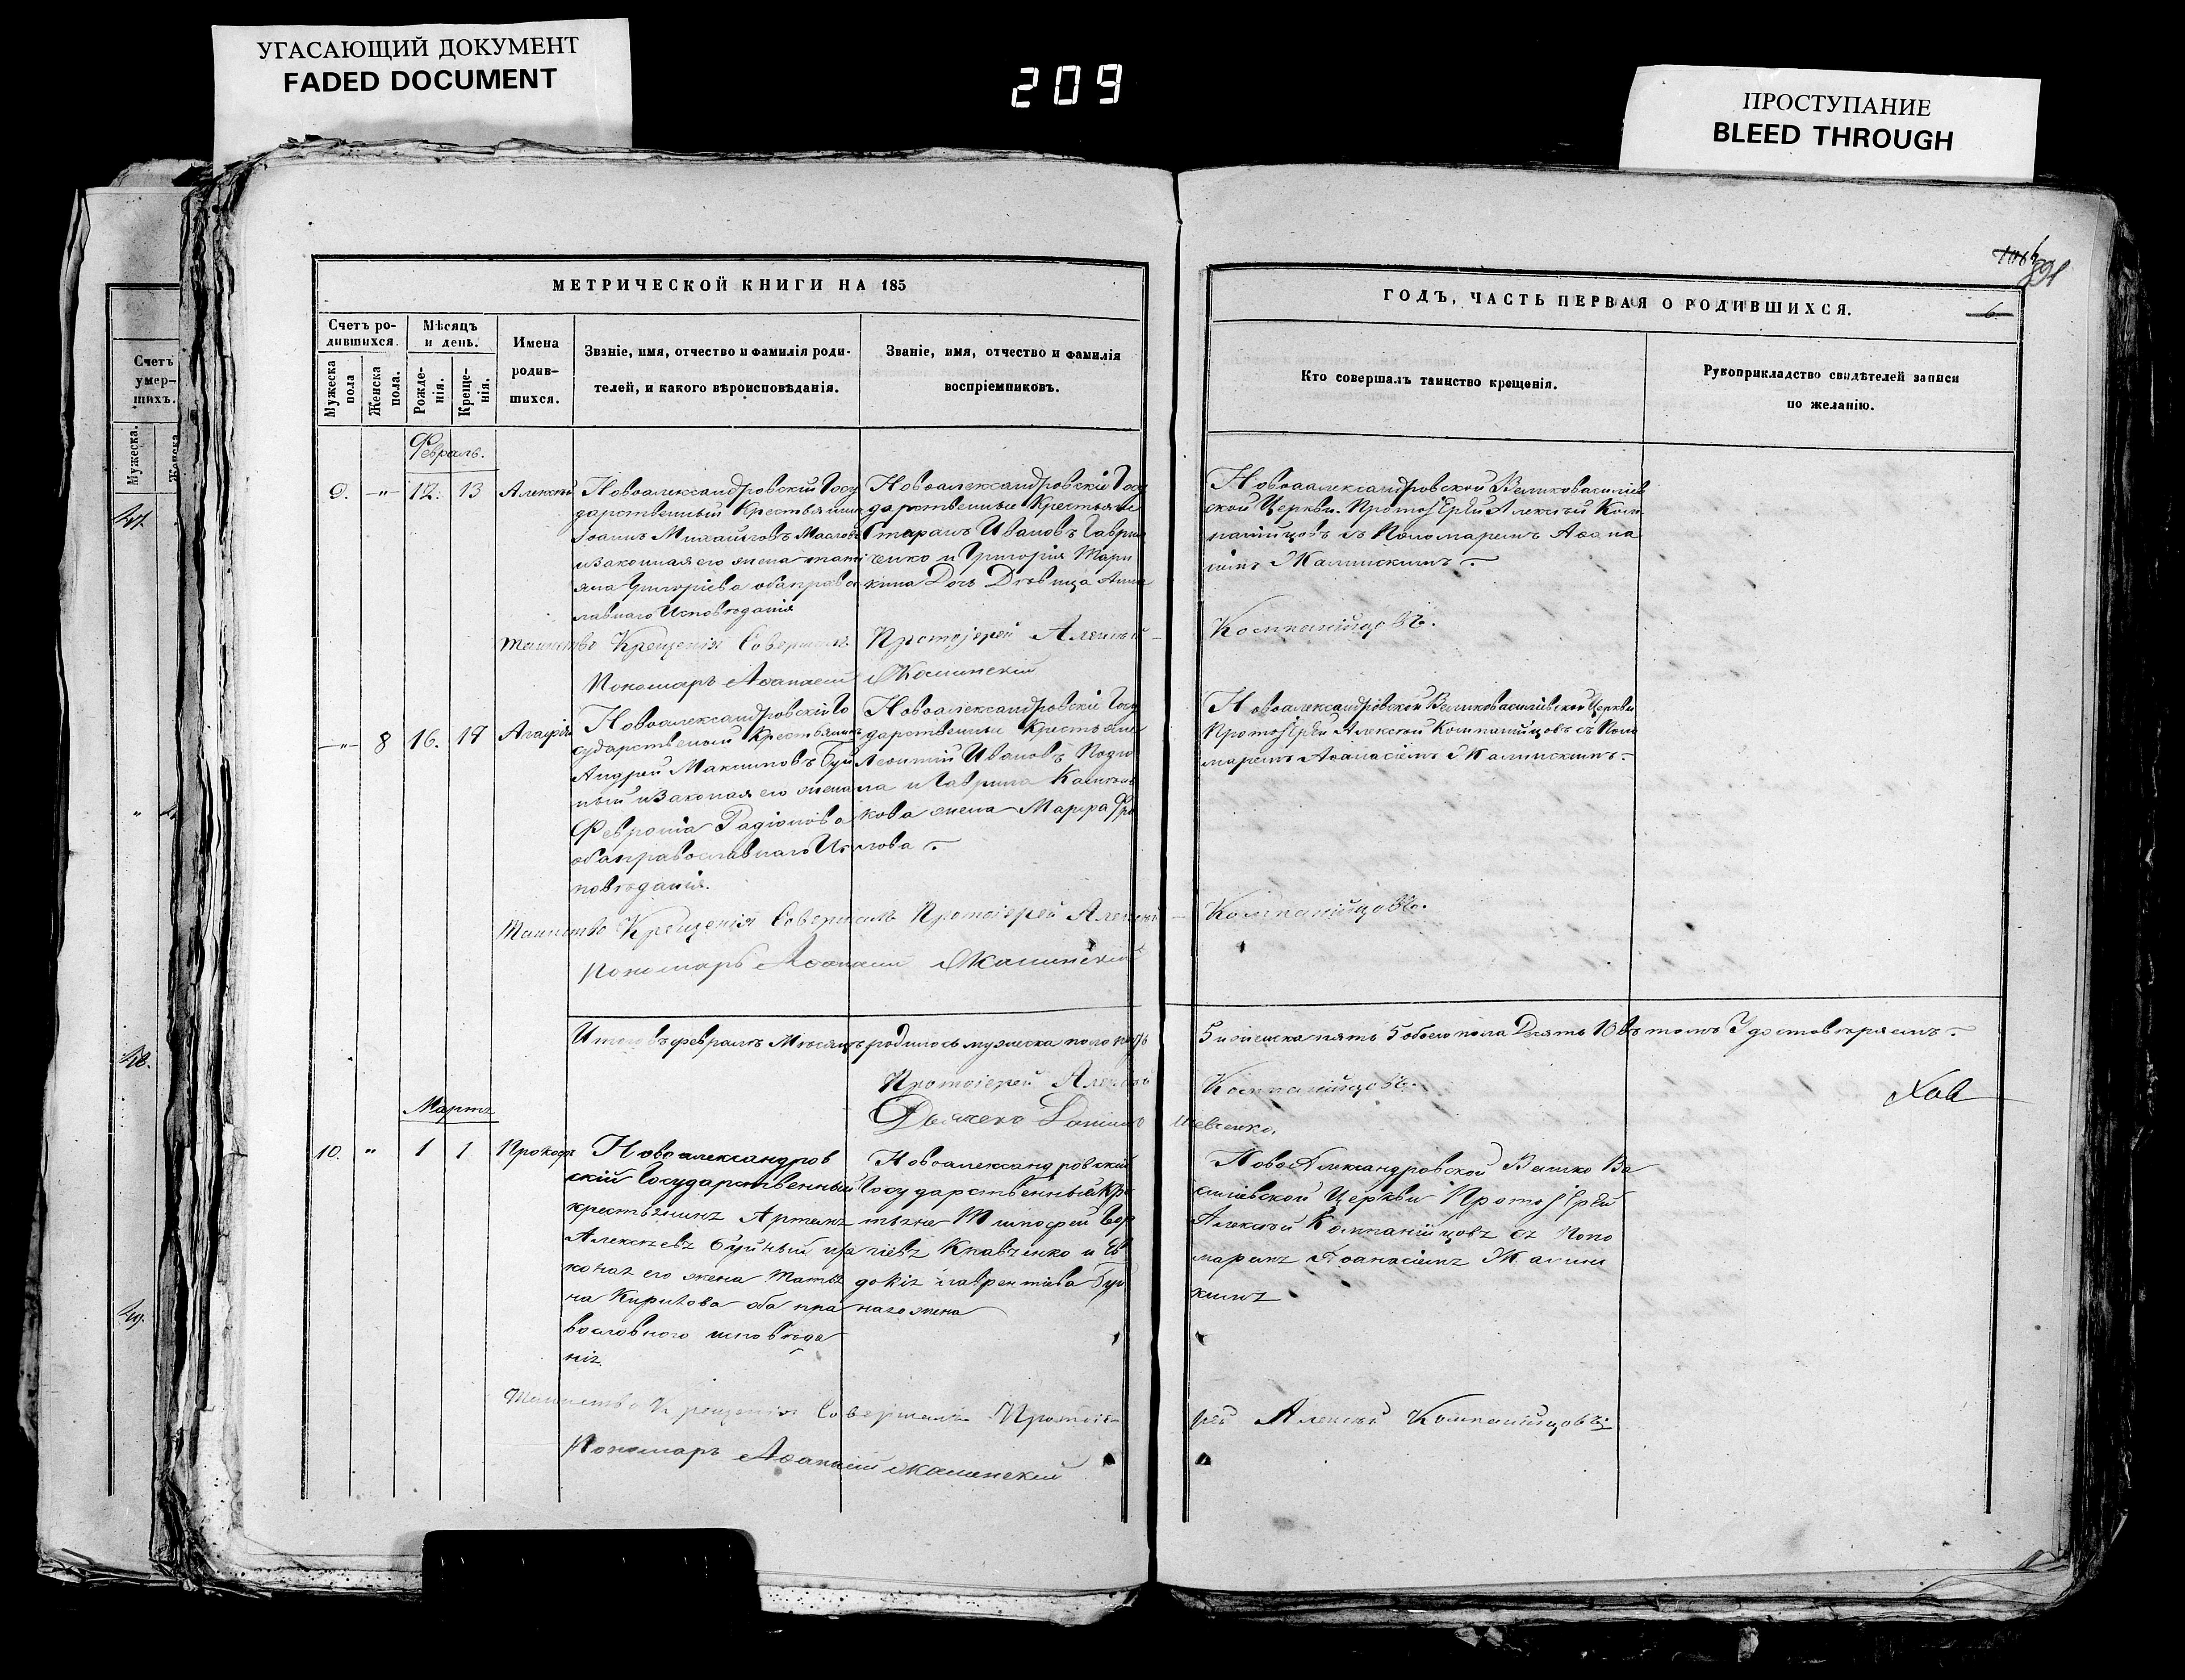 УГАСАЮЩИЙ ДОКУМЕНТ
FADED DOCUMENT
209
ПРОСТУПАНИЕ
BLEED THROUGH
Счетъ
умер-
шихъ.
Мужеска.
Женска
41.
48.
49.
МЕТРИЧЕСКОЙ КНИГИ НА 185
Счетъ ро-
дившихся.
Мужеска пола
Женска пола.
Мѣсяцъ
и день.
Рожде-
нія.
Креще-
нія.
Имена
родив-
шихся.
Званіе, имя, отчество и фамилія роди-
телей, и какого вѣроисповѣданія.
Званіе, имя, отчество и фамилія
воспріемниковъ.
Февраль.
9. -"- 12. 13 Алексѣй
Новоалександровскій Госу
дарственный Крестьянинъ
Іоаннъ Михайловъ
и законная его жена Тати
яна Григоріева оба право
славнаго Исповѣданія
Новоалександровскіе Госу
дарственные Крестьяне
Ивановъ Гаври
ченко и Григорія
кина Дочь Дѣвица Анна
Таинство Крещенія Совершалъ Протоіерей Алексѣй
Пономарь Аѳанасій Жалинскій
-"- 8 16. 17 Агафія
Новоалександровскій Го
сударственный Крестьянинъ
Андрей Максимовъ Буй
ный и законная его жена
Феврониа Радіонова
оба православнаго Ис
повѣданія.
Новоалександровскіе Госу
дарственные Крестьяне
Леонтій Ивановъ
на и Гаврила
кова жена Марфа Фро
лова
Таинство Крещенія Совершалъ Протоіерей Алексѣй
Пономарь Аѳанасій Жалинскій
Итого въ февралѣ Мѣсяцѣ родилось мужеска пола пять
Протоіерей Алексѣй
Мартъ
10. " 1 1 Прокофій
Новоалександров
скій Государственный
крестьянинъ Артемъ
Алексѣевъ Буйный и за
конная его жена Татья
на Кирилова оба пра
вославного исповѣда
нія.
Новоалександровский
Государственный Кре
стьяне Тимофей Сер
гіевъ Кравченко и Ев
докія Лаврентіева Буй
наго жена
Таинство Крещенія Совершалъ Протоіе-
Пономарь Аѳанасій Жалинскій
ГОДЪ, ЧАСТЬ ПЕРВАЯ О РОДИВШИХСЯ.
6.
Кто совершалъ таинство крещенія.
Рукоприкладство свидѣтелей записи
по желанію.
Новоалександровской Великовасиліев
ской Церкви Протоіерей Алексѣй Ком
панійцовъ съ Пономаремъ Аѳана
сіемъ Жалинскимъ
Компанійцовъ.
Новоалександровской Великовасиліевской Церкви
Протоіерей Алексѣй Компанійцовъ съ Поно
маремъ Аѳанасіемъ Жалинскимъ
Компанійцовъ.
5 и женска пять 5 обоего пола Десять 10 Въ томъ Удостовѣряемъ.
Компанійцовъ.
НовоАлександровской Велико Ва
силіевской Церкви Протоіерей
Алексѣй Компанійцовъ съ Поно
маремъ Аѳанасіемъ Жалин
скимъ
рей Алексѣй Компанійцовъ